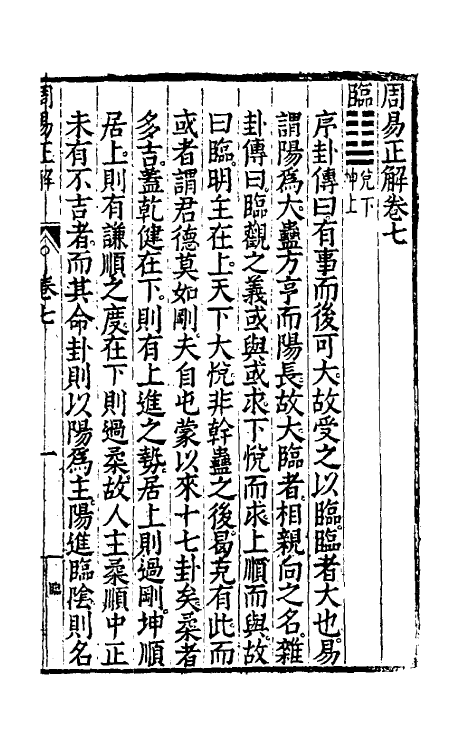 周易正解卷七
臨 兌下坤上
序卦傳曰有事而後可大故受之以臨臨者大也易
謂陽為大蠱方亨而陽長故大臨者相親向之名雜
卦傳曰臨觀之義或與或求下悅而求上順而與故
曰臨明主在上天下大悅非幹蠱之後曷克有此而
或者謂君德莫如剛夫自屯蒙以來十七卦矣柔者
多吉蓋乾健在下則有上進之勢居上則過剛坤順
居上則有謙順之度在下則過柔故人主柔順中正
未有不吉者而其命卦則以陽為主陽進臨陰則名
周易正解
卷七
一
臨